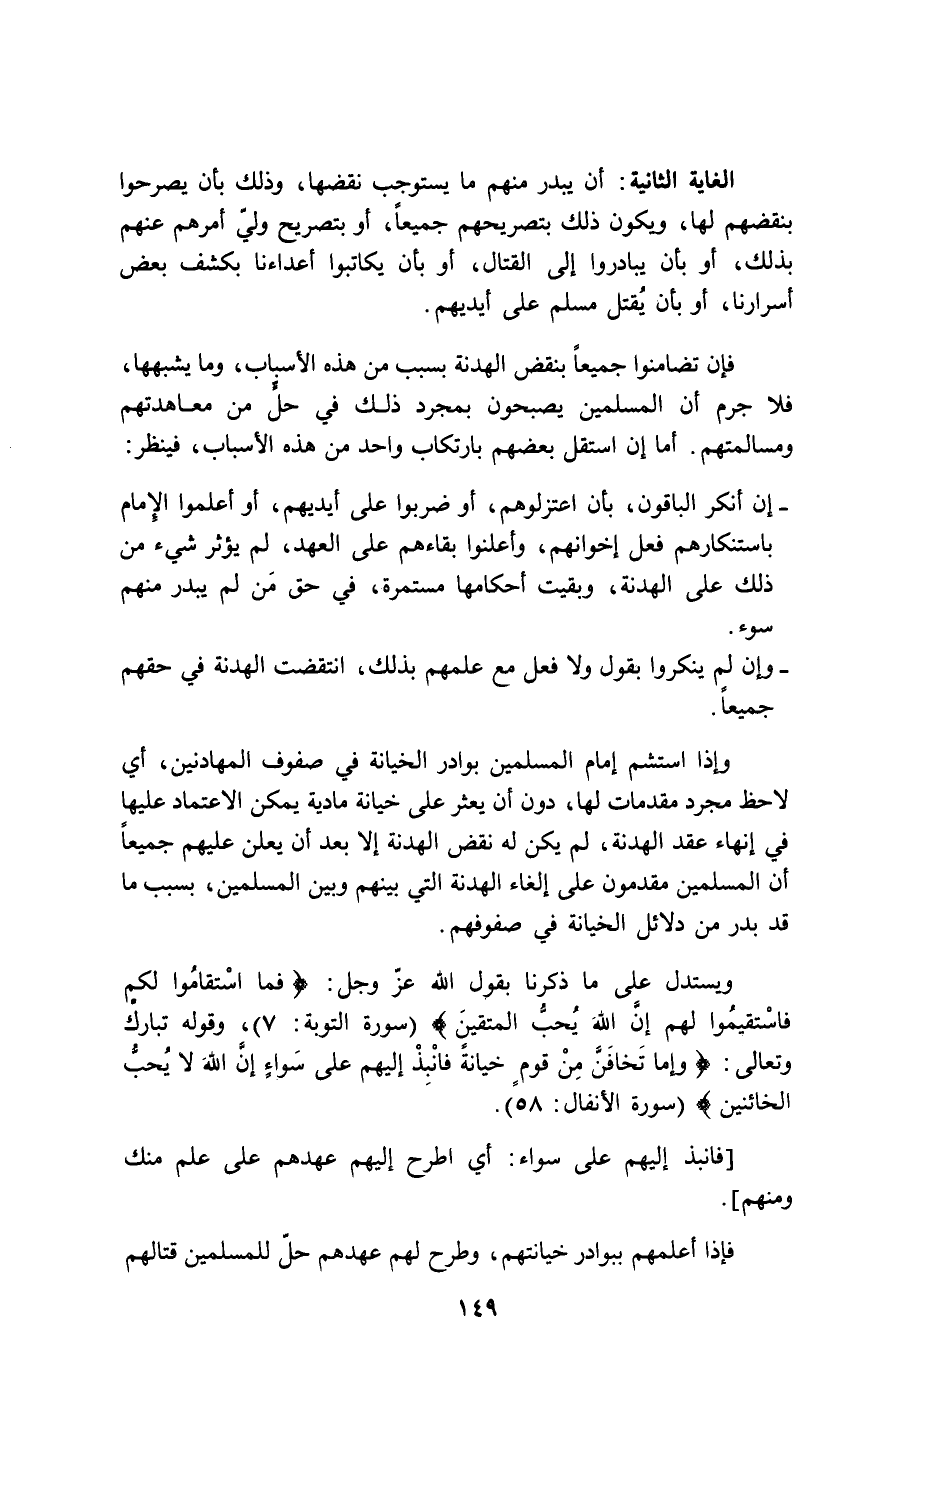 الغاية الثانية: أن يبدر منهم ما يستوجب نقضها، وذلك بأن يصرحوا
بنقضهم لها، ويكون ذلك بتصريحهم جميعاً، أو بتصريح وليّ أمرهم عنهم
بذلك، أو بأن يبادروا إلى القتال، أو بأن يكاتبوا أعداءنا بكشف بعض
أسرارنا، أو بأن يُقتل مسلم على أيديهم.
فإن تضامنوا جميعاً بنقض الهدنة بسبب من هذه الأسباب، وما يشبهها،
فلا جرم أن المسلمين يصبحون بمجرد ذلك في حلٍّ من معاهدتهم
ومسالمتهم. أما إن استقل بعضهم بارتكاب واحد من هذه الأسباب، فينظر:
- إن أنكر الباقون، بأن اعتزلوهم، أو ضربوا على أيديهم، أو أعلموا الإمام
باستنكارهم فعل إخوانهم، وأعلنوا بقاءهم على العهد، لم يؤثر شيء من
ذلك على الهدنة، وبقيت أحكامها مستمرة، في حق مَن لم يبدر منهم
سوء.
- وإن لم ينكروا بقول ولا فعل مع علمهم بذلك، انتقضت الهدنة في حقهم
جميعاً.
وإذا استشم إمام المسلمين بوادر الخيانة في صفوف المهادنين، أي
لاحظ مجرد مقدمات لها، دون أن يعثر على خيانة مادية يمكن الاعتماد عليها
في إنهاء عقد الهدنة، لم يكن له نقض الهدنة إلا بعد أن يعلن عليهم جميعاً
أن المسلمين مقدمون على إلغاء الهدنة التي بينهم وبين المسلمين، بسبب ما
قد بدر من دلائل الخيانة في صفوفهم.
ويستدل على ما ذكرنا بقول الله عزّ وجل: ﴿ فما اسْتقامُوا لكم
فاسْتقيمُوا لهم إنَّ اللهَ يُحبُّ المتقينَ ﴾ (سورة التوبة: ٧)، وقوله تبارك
وتعالى: ﴿ وإما تَخافَنَّ مِنْ قومٍ خيانةً فانْبِذْ إليهم على سَواءٍ إنَّ اللهَ لا يُحبُّ
الخائنين ﴾ (سورة الأنفال: ٥٨).
[فانبذ إليهم على سواء: أي اطرح إليهم عهدهم على علم منك
ومنهم].
فإذا أعلمهم ببوادر خيانتهم، وطرح لهم عهدهم حلّ للمسلمين قتالهم
١٤٩